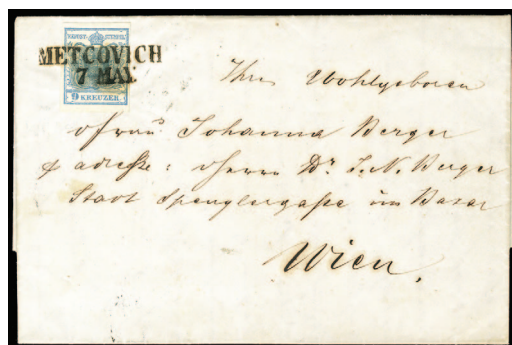 METCOVICH
7 MAY.
9 KREUZER
Ihr Wohlgeboren
Frau Johanna Berger
adreße: Herrn Dr. J. N. Berger
Stadt Spenglergaße im Bazar
Wien.